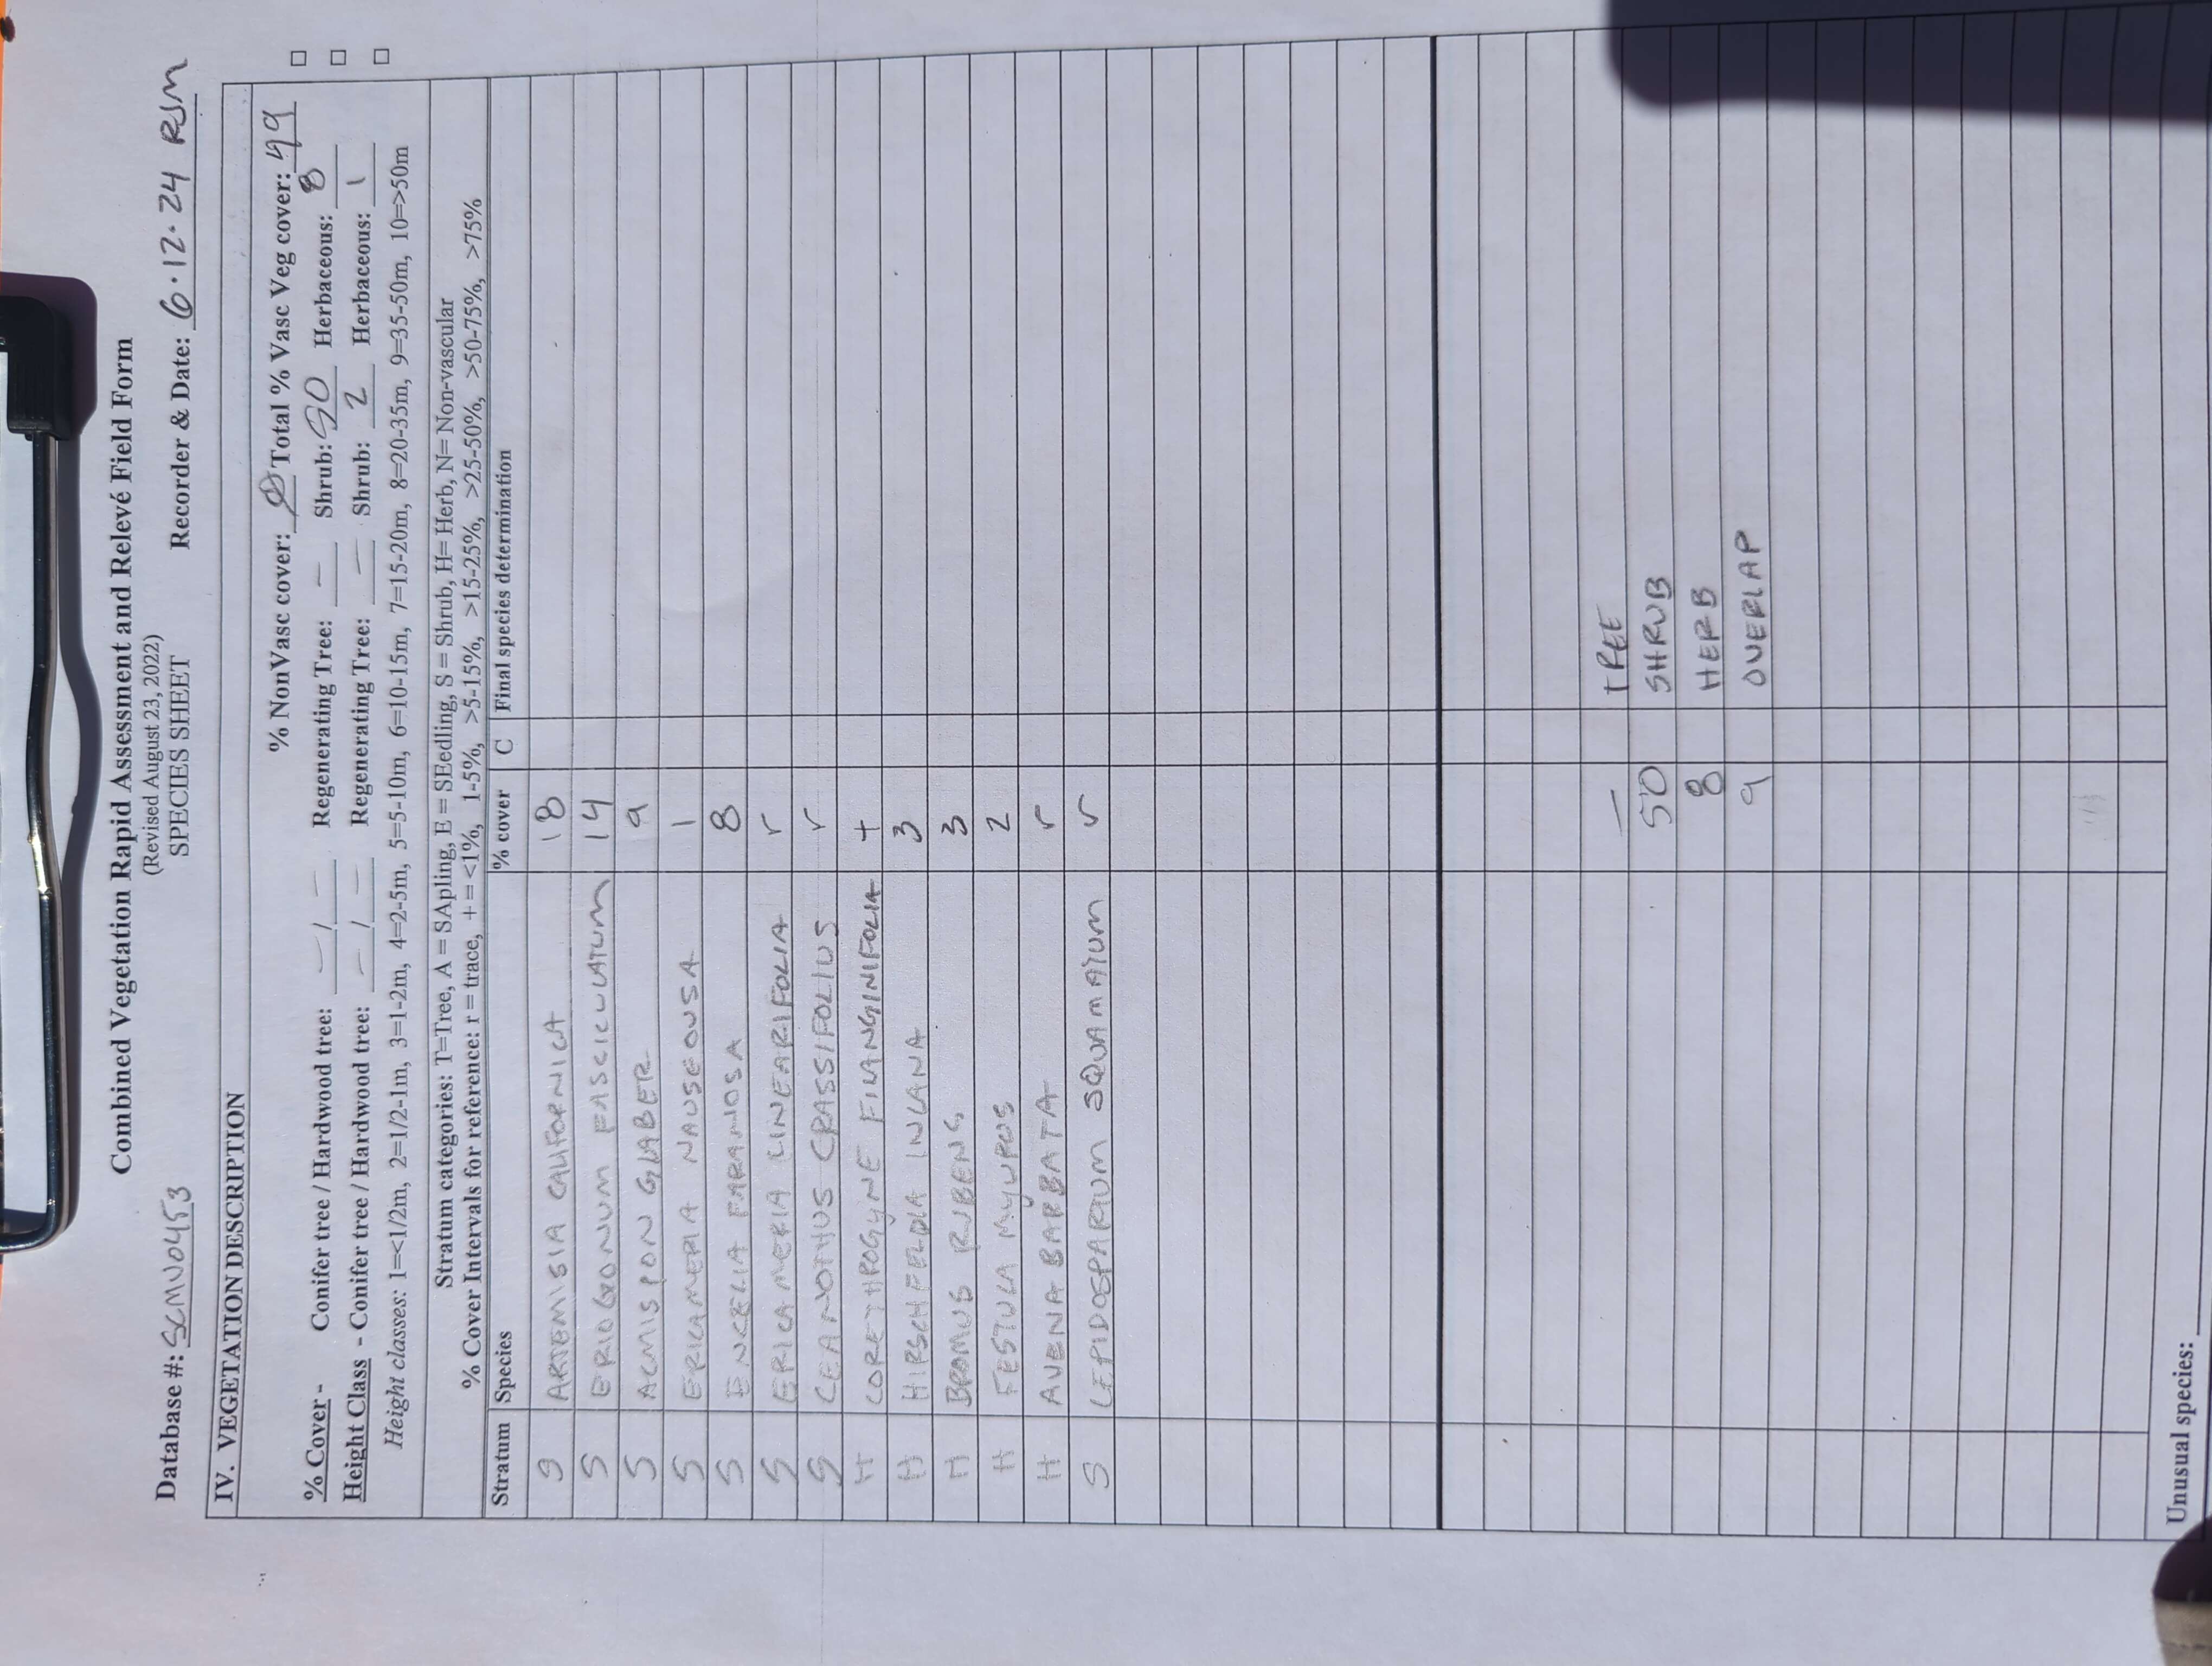 Combined Vegetation Rapid Assessment and Relevé Field Form
(Revised August 23, 2022)
SPECIES SHEET
Database #: SCMV0453 Recorder & Date: 6·12·24 RJM
IV. VEGETATION DESCRIPTION
% NonVasc cover: Ø Total % Vasc Veg cover: 49
% Cover - Conifer tree / Hardwood tree: - / - Regenerating Tree: - Shrub: 50 Herbaceous: 8
Height Class - Conifer tree / Hardwood tree: - / - Regenerating Tree: - Shrub: 2 Herbaceous: 1
Height classes: 1=<1/2m, 2=1/2-1m, 3=1-2m, 4=2-5m, 5=5-10m, 6=10-15m, 7=15-20m, 8=20-35m, 9=35-50m, 10=>50m
Stratum categories: T=Tree, A = SApling, E = SEedling, S = Shrub, H= Herb, N= Non-vascular
% Cover Intervals for reference: r = trace, + = <1%, 1-5%, >5-15%, >15-25%, >25-50%, >50-75%, >75%
Stratum Species % cover C Final species determination
S ARTEMISIA CALIFORNICA 18
S ERIOGONUM FASCICULATUM 14
S ACMISPON GLABER 9
S ERICAMERIA NAUSEOUSA 1
S ENCELIA FARANOSA 8
S ERICAMERIA LINEARIFOLIA r
S CEANOTHUS CRASSIFOLIUS r
H CORETHROGYNE FILANGINIFOLIA +
H HIRSCHFELDIA INCANA 3
H BROMUS RUBENS 3
H FESTUCA MYURUS 2
H AVENA BARBATA r
S LEPIDOSPARTUM SQUAMATUM r
— TREE
50 SHRUB
8 HERB
9 OVERLAP
Unusual species: